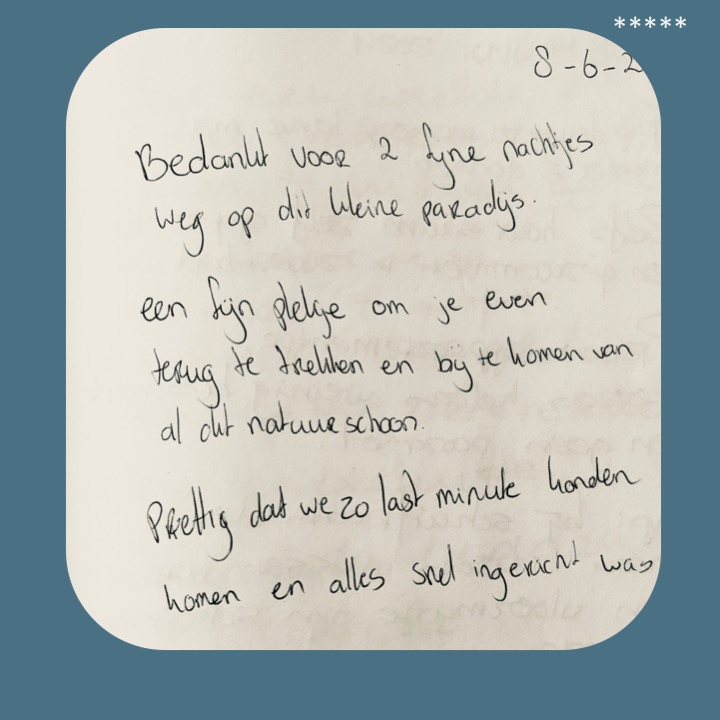 *****
8-6-2
Bedankt voor 2 fijne nachtjes
weg op dit kleine paradijs.
een fijn plekje om je even
terug te trekken en bij te komen van
al dit natuurschoon.
Prettig dat we zo last minute konden
komen en alles snel ingericht was